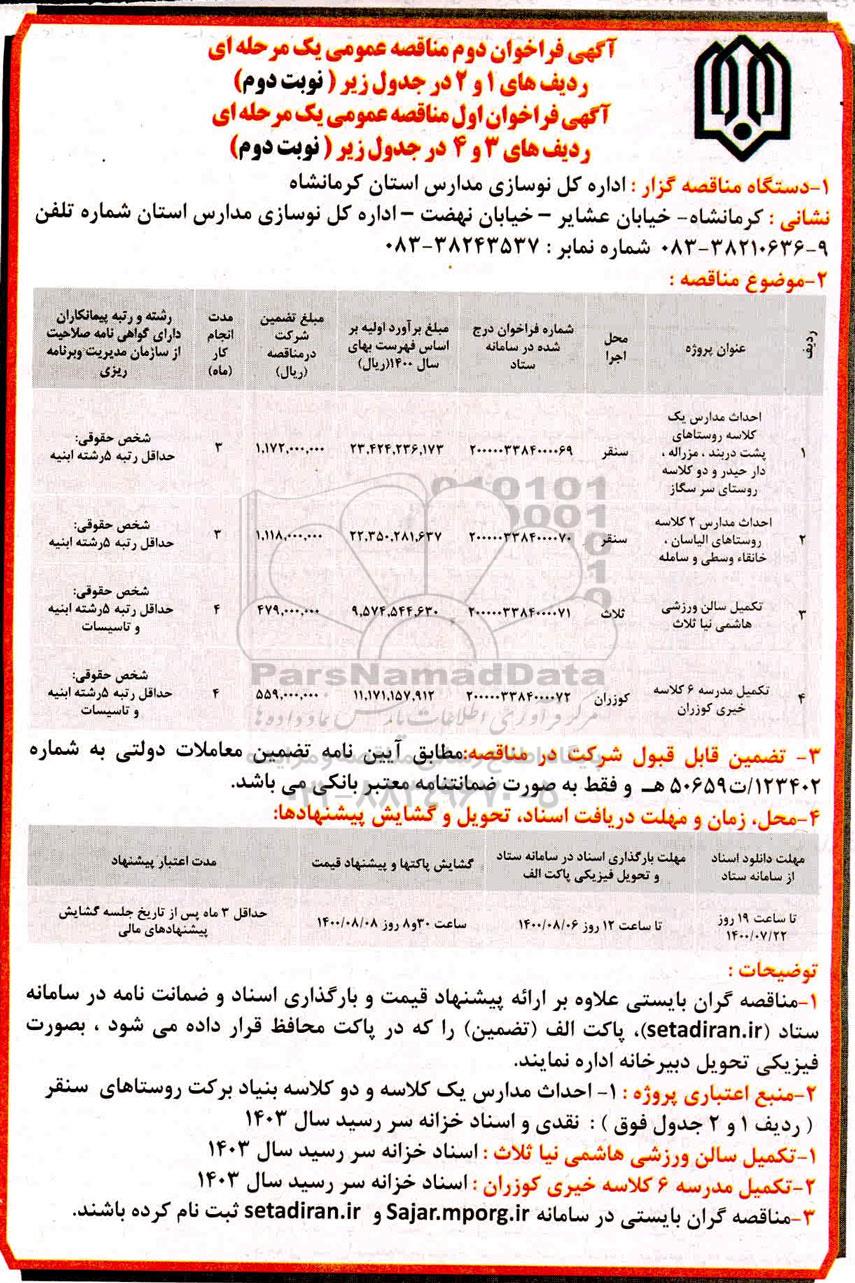 آگهی فراخوان دوم مناقصه عمومی یک مرحله ای
ردیف های ۱ و ۲ در جدول زیر ( نوبت دوم)
آگهی فراخوان اول مناقصه عمومی یک مرحله ای
ردیف های ۳ و ۴ در جدول زیر ( نوبت دوم)
۱-دستگاه مناقصه گزار : اداره کل نوسازی مدارس استان کرمانشاه
نشانی : کرمانشاه- خیابان عشایر – خیابان نهضت – اداره کل نوسازی مدارس استان شماره تلفن
۹-۳۸۲۱۰۶۳۶-۰۸۳ شماره نمابر : ۳۸۲۴۳۵۳۷-۰۸۳
۲-موضوع مناقصه :
ردیف
عنوان پروژه
محل
اجرا
شماره فراخوان درج
شده در سامانه
ستاد
مبلغ برآورد اولیه بر
اساس فهرست بهای
سال ۱۴۰۰(ریال)
مبلغ تضمین
شرکت
درمناقصه
(ریال)
مدت
انجام
کار
(ماه)
رشته و رتبه پیمانکاران
دارای گواهی نامه صلاحیت
از سازمان مدیریت وبرنامه
ریزی
۱
احداث مدارس یک
کلاسه روستاهای
پشت دربند ، مزراله ،
دار حیدر و دو کلاسه
روستای سر سگاز
سنقر
۲۰۰۰۰۰۳۳۸۴۰۰۰۰۶۹
۲۳,۴۲۴,۲۳۶,۱۷۳
۱,۱۷۲,۰۰۰,۰۰۰
۳
شخص حقوقی:
حداقل رتبه ۵رشته ابنیه
۲
احداث مدارس ۲ کلاسه
روستاهای الیاسان ،
خانقاء وسطی و سامله
سنقر
۲۰۰۰۰۰۳۳۸۴۰۰۰۰۷۰
۲۲,۳۵۰,۲۸۱,۶۳۷
۱,۱۱۸,۰۰۰,۰۰۰
۳
شخص حقوقی:
حداقل رتبه ۵رشته ابنیه
۳
تکمیل سالن ورزشی
هاشمی نیا ثلاث
ثلاث
۲۰۰۰۰۰۳۳۸۴۰۰۰۰۷۱
۹,۵۷۴,۵۴۴,۶۳۰
۴۷۹,۰۰۰,۰۰۰
۴
شخص حقوقی:
حداقل رتبه ۵رشته ابنیه
و تاسیسات
۴
تکمیل مدرسه ۶ کلاسه
خیری کوزران
کوزران
۲۰۰۰۰۰۳۳۸۴۰۰۰۰۷۲
۱۱,۱۷۱,۱۵۷,۹۱۲
۵۵۹,۰۰۰,۰۰۰
۴
شخص حقوقی:
حداقل رتبه ۵رشته ابنیه
و تاسیسات
ParsNamadData
۳- تضمین قابل قبول شرکت در مناقصه:مطابق آیین نامه تضمین معاملات دولتی به شماره
۱۲۳۴۰۲/ت۵۰۶۵۹ هـ و فقط به صورت ضمانتنامه معتبر بانکی می باشد.
۴-محل، زمان و مهلت دریافت اسناد، تحویل و گشایش پیشنهادها:
مهلت دانلود اسناد
از سامانه ستاد
مهلت بارگذاری اسناد در سامانه ستاد
و تحویل فیزیکی پاکت الف
گشایش پاکتها و پیشنهاد قیمت
مدت اعتبار پیشنهاد
تا ساعت ۱۹ روز
۱۴۰۰/۰۷/۲۲
تا ساعت ۱۲ روز ۱۴۰۰/۰۸/۰۶
ساعت ۳۰و۸ روز ۱۴۰۰/۰۸/۰۸
حداقل ۳ ماه پس از تاریخ جلسه گشایش
پیشنهادهای مالی
توضیحات :
۱-مناقصه گران بایستی علاوه بر ارائه پیشنهاد قیمت و بارگذاری اسناد و ضمانت نامه در سامانه
ستاد (setadiran.ir)، پاکت الف (تضمین) را که در پاکت محافظ قرار داده می شود ، بصورت
فیزیکی تحویل دبیرخانه اداره نمایند.
۲-منبع اعتباری پروژه : ۱- احداث مدارس یک کلاسه و دو کلاسه بنیاد برکت روستاهای سنقر
( ردیف ۱ و ۲ جدول فوق ) : نقدی و اسناد خزانه سر رسید سال ۱۴۰۳
۱-تکمیل سالن ورزشی هاشمی نیا ثلاث : اسناد خزانه سر رسید سال ۱۴۰۳
۲-تکمیل مدرسه ۶ کلاسه خیری کوزران : اسناد خزانه سر رسید سال ۱۴۰۳
۳-مناقصه گران بایستی در سامانه Sajar.mporg.ir و setadiran.ir ثبت نام کرده باشند.